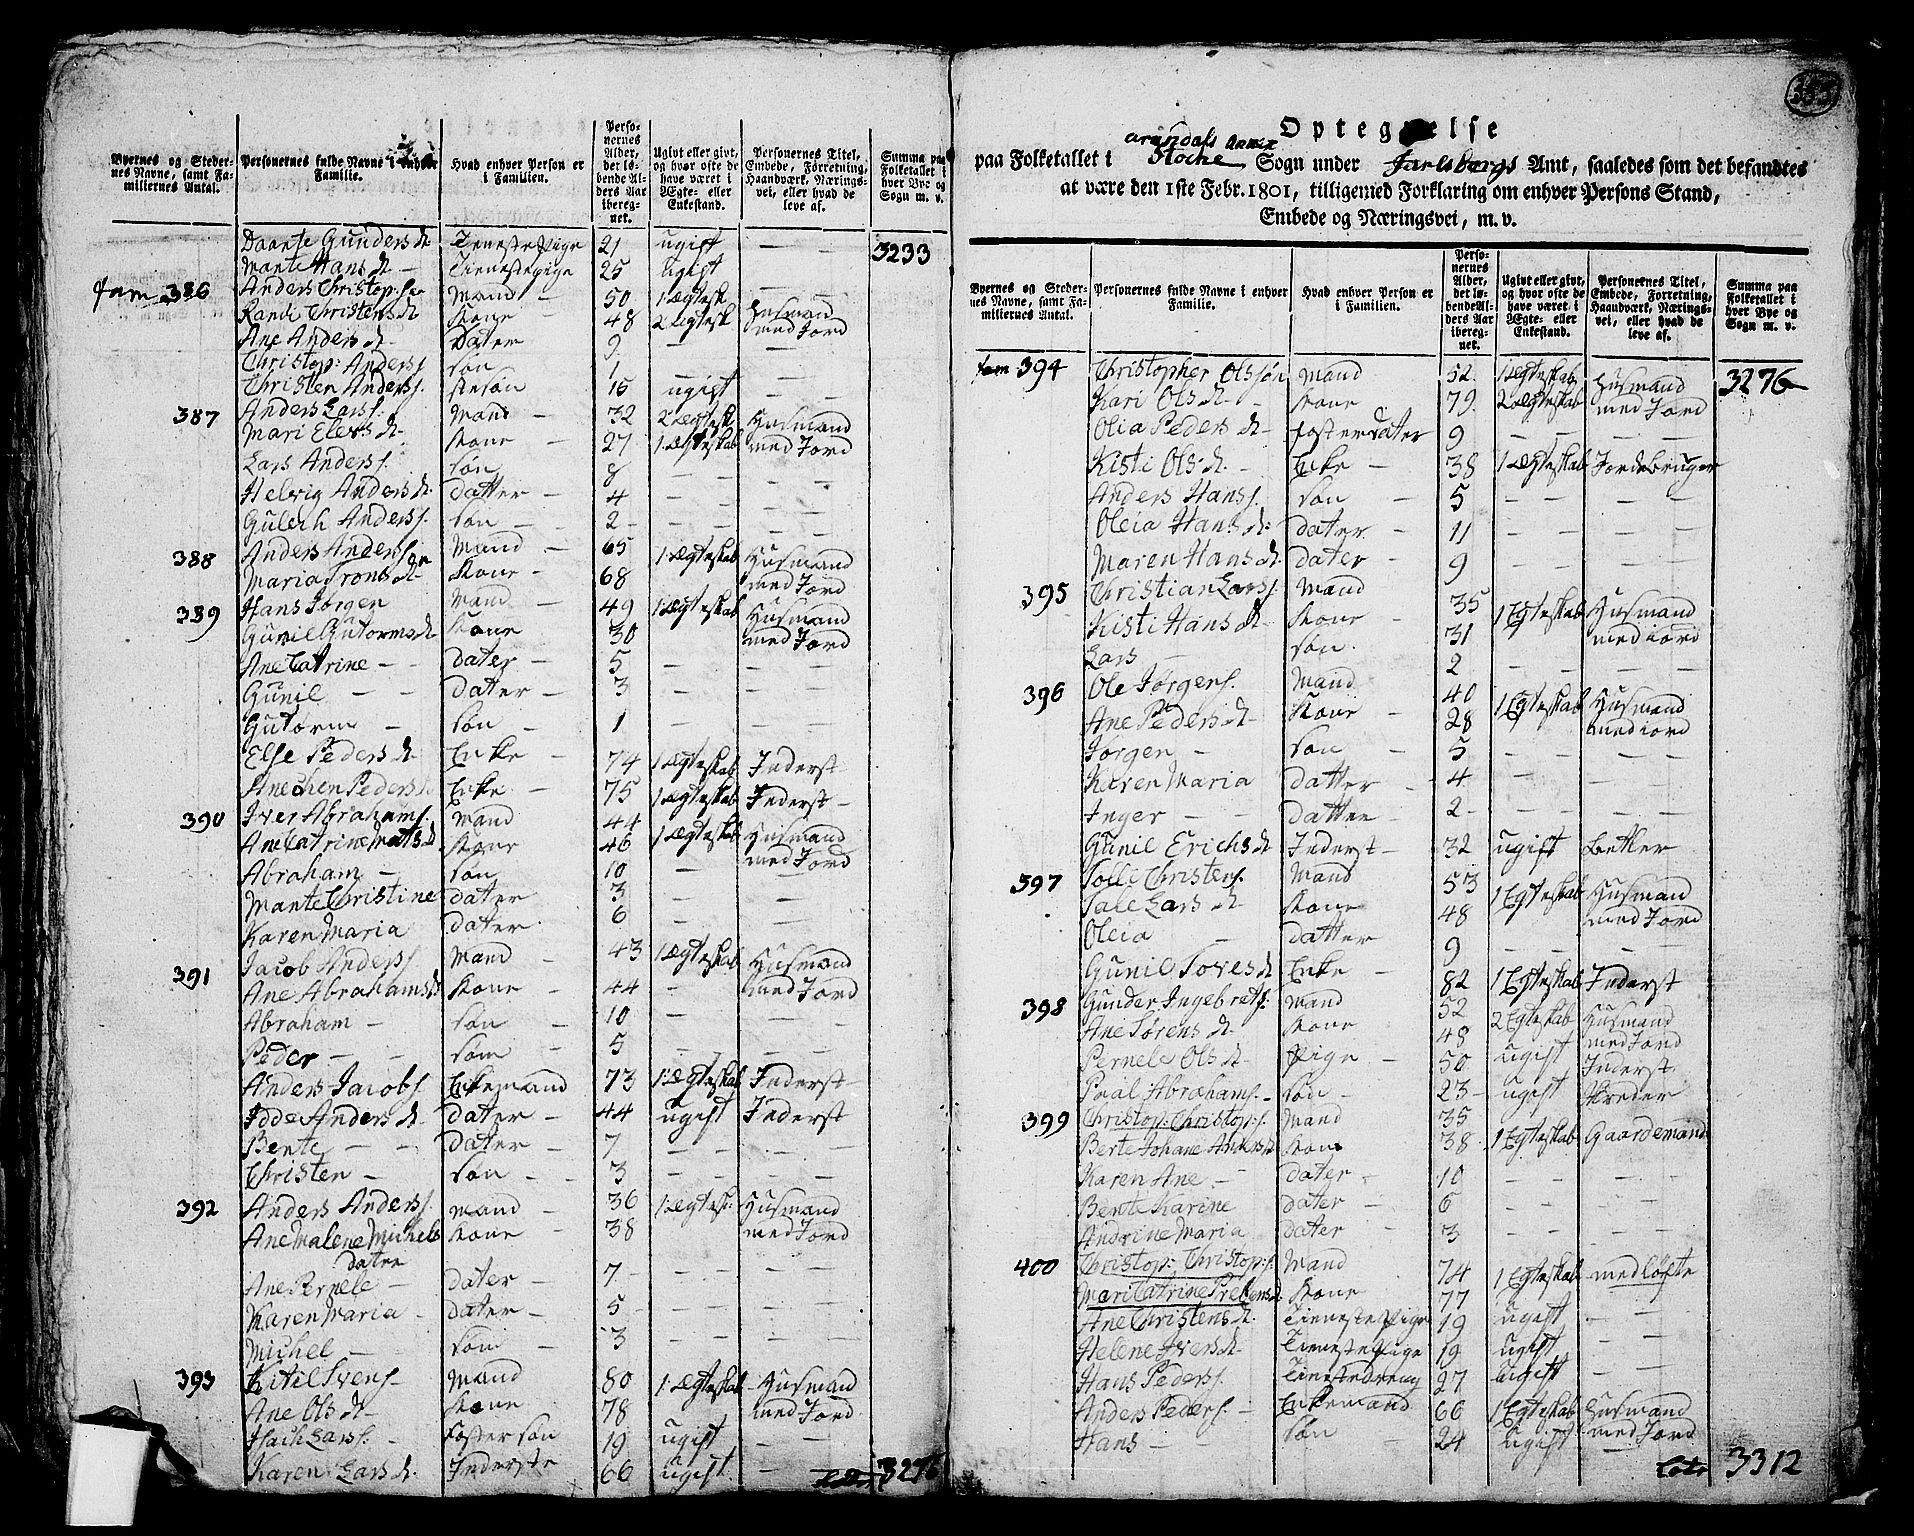 Byernes og Steder-
nes Navne, samt Fa-
miliernes Antal.
Personernes fulde Navne i enhver
Familie.
Hvad enhver Person er
i Familien.
Perso-
nernes
Alder,
det lø-
bende Al-
ders Aar
ibereg-
net.
Ugivt eller givt,
og hvor ofte de
have været i
Ægte- eller
Enkestand.
Personernes Titel,
Embede, Forretning,
Haandværk, Nærings-
vei, eller hvad de
leve af.
Summa paa
Folketallet i
hver Bye og
Sogn m. v.
Daarte Gunders d. Tieneste Pige 21 ugift — 3233
Marte Hans d. — Tienestepige 25 ugift —
fam 386 Anders Christop: sen Mand — 50 1 Ægtesk
Randi Christens d. Kone — 48 2 Ægtesk Husmand med Jord
Ane Anders d. Dater 9 — —
Christop: Anderss søn 1 — —
Christen Anderss. stesøn 15 ugift —
387 Anders Larss: Mand — 32 2 Ægtesk Husmand
Mari Elers d. Kone — 27 1 Ægteskab med Jord
Lars Anderss. søn 8 — —
Helvig Anders d. datter — 4 — —
Gulech Anderss. søn — 2 — —
388 Anders Andersen Mand — 65 1 Ægteskab Husmand
Maria Trons d. Kone — 68 med Jord
389 Hans Jørgen Mand — 49 1 Ægteskab Husmand
Gunil Gutorms d. Kone 30 med Jord
Ane Catrine — dater — 5 — —
Gunil — — dater — 3 — —
Gutorm — søn — 1 — —
Else Peders d. Encke — 74 1 Ægteskab Inderst
Anechen Peders d. Encke — 75 1 Ægteskab Inderst —
390 Iver Abrahams. Mand 44 1 Ægteskab Husmand
Ane Catrine Mats d. Kone 46 med Jord
Abraham — søn 10 — —
Marte Christine dater 3 — —
Karen Maria dater 6 — —
391 Jacob Anderss Mand — 43 1 Ægteskab Husmand
Ane Abrahams d. Kone — 44 — med Jord
Abraham — søn — 10 — —
Peder — — søn — 5 — —
Anders Jacobs. Enkemand 73 1 Ægteskab Inderst —
Idde Anders d. dater — 44 ugift Inderst
Bente — — dater — 7 — —
Christen — søn — 3 — —
392 Anders Anderss. Mand — 36 1 Ægtes: Husmand
Ane Malene Michels Kone — 38 med Jord
dater
Ane Pernele — dater — 7 — —
Karen Maria — dater — 5 — —
Michel — søn — 3 — —
393 Kitil Svens. Mand 80 1 Ægteskab Husmand
Ane Ols d. Kone 78 med Jord
Isach Larss. Foster søn 19 ugift —
Karen Lars d. Inderste 66 ugift — 3276
Optegnelse
paa Folketallet i Arundals Annex Stocke Sogn under Jarlsbergs Amt, saaledes som det befandtes
at være den 1ste Febr. 1801, tilligemed Forklaring om enhver Persons Stand,
Embede og Næringsvei, m. v.
Byernes og Steder-
nes Navne, samt Fa-
miliernes Antal.
Personernes fulde Navne i enhver
Familie.
Hvad enhver Person er
i Familien.
Perso-
nernes
Alder,
det lø-
bende Al-
ders Aar
ibereg-
net.
Ugivt eller givt,
og hvor ofte de
have været i
Ægte- eller
Enkestand.
Personernes Titel,
Embede, Forretning,
Haandværk, Nærings-
vei, eller hvad de
leve af.
Summa paa
Folketallet i
hver Bye og
Sogn m. v.
fam 394 Christopher Olssøn Mand 52 1 Ægteskab Husmand 3276
Kari Ols d. — Kone 79 2 Ægteskab med Jord
Olia Peders d. foster dater 9 — —
Kisti Ols d. — Encke — 38 1 Ægteskab Jordebruger
Anders Hanss. søn — 5 — —
Oleia Hans d: dater — 11 — —
Maren Hans d. dater — 9 — —
395 Christian Larss. Mand 35 1 Egteskab Husmand
Kisti Hans d. Kone — 31 med iord
Lars — søn 2 — —
396 Ole Jørgens. Mand 40 1 Egteskab Husmand
Ane Peders d. Kone — 28 med iord
Jorgen — søn — 5 — —
Karen Maria datter — 4 — —
Inger — — datter — 2 — —
Gunil Erichs d. Inderst — 32 ugift Betler
397 Tolli Christens. Mand 53 1 Egteskab Husmand
Tale Lars d. Kone 48 med Jord
Oleia — datter 9 — —
Gunil Tores d. Encke — 82 1 Egteskab Inderst
398 Gunder Ingebrets: Mand 52 2 Egteskab Husmand
Ane Sørens d. Kone 48 med Jord
Pernele Ols d. Pige — 50 ugift Inderst
Paal Abrahams. søn — 23 ugift Skreder
399 Christop: Christop:s. Mand 35 1 Egteskab Gaardemand
Berte Johane Anders d. Kone 38
Karen Ane — dater — 10 — —
Bente Karine dater — 6 — —
Andrine Maria dater 3 — —
400 Christop: Christop:s. Mand 74 1 Egteskab med løfte
Mari Catrine Prebens d. Kone 77 —
Ane Christens d. Tieneste Pige 19 ugift —
Helene Ivers d. Tieneste Pige 19 ugift —
Hans Pederss. Tienestedreng 27 ugift —
Anders Peders. — Enkemand 60 1 Egteskab Husmand
Hans — — søn — 24 ugift med Jord
Lats 3312